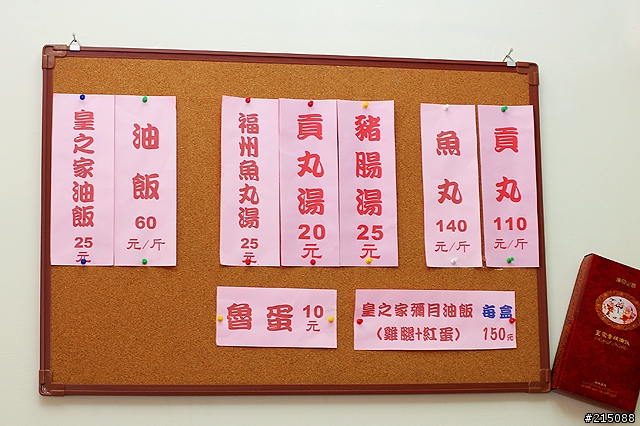 皇之家油飯
25
元
油飯
60
元/斤
福州魚丸湯
25
元
貢丸湯
20
元
豬腸湯
25
元
魚丸
140
元/斤
貢丸
110
元/斤
魯蛋 10元
皇之家彌月油飯 每盒
(雞腿+紅蛋) 150元
#215088